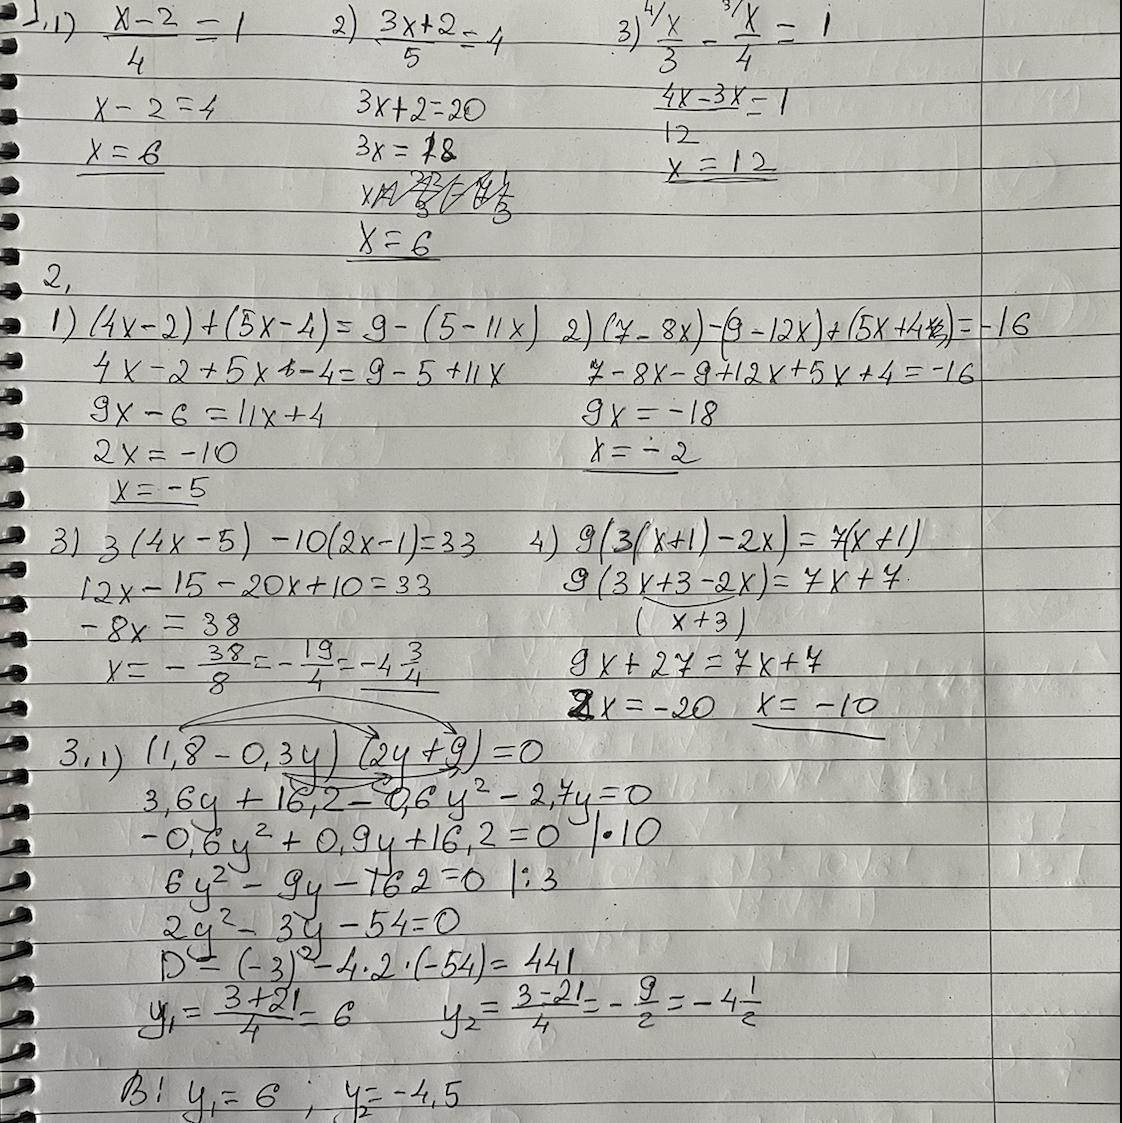 1.1) (x-2)/4 = 1
x-2=4
x=6
2) (3x+2)/5 = 4
3x+2=20
3x=18
x=6
3) 4/ x/3 - 3/ x/4 = 1
(4x-3x)/12 = 1
x=12
2,
1) (4x-2)+(5x-4)=9-(5-11x)
4x-2+5x-4=9-5+11x
9x-6=11x+4
2x=-10
x=-5
2) (7-8x)-(9-12x)+(5x+4)=-16
7-8x-9+12x+5x+4=-16
9x=-18
x=-2
3) 3(4x-5)-10(2x-1)=33
12x-15-20x+10=33
-8x=38
x=-38/8=-19/4=-4 3/4
4) 9(3(x+1)-2x)=7(x+1)
9(3x+3-2x)=7x+7
(x+3)
9x+27=7x+7
2x=-20 x=-10
3.1) (1,8-0,3y)(2y+9)=0
3,6y+16,2-0,6y²-2,7y=0
-0,6y²+0,9y+16,2=0 |•10
6y²-9y-162=0 |:3
2y²-3y-54=0
D=(-3)²-4·2·(-54)=441
y₁=(3+21)/4=6 y₂=(3-21)/4=-9/2=-4 1/2
B! y₁=6; y₂=-4,5